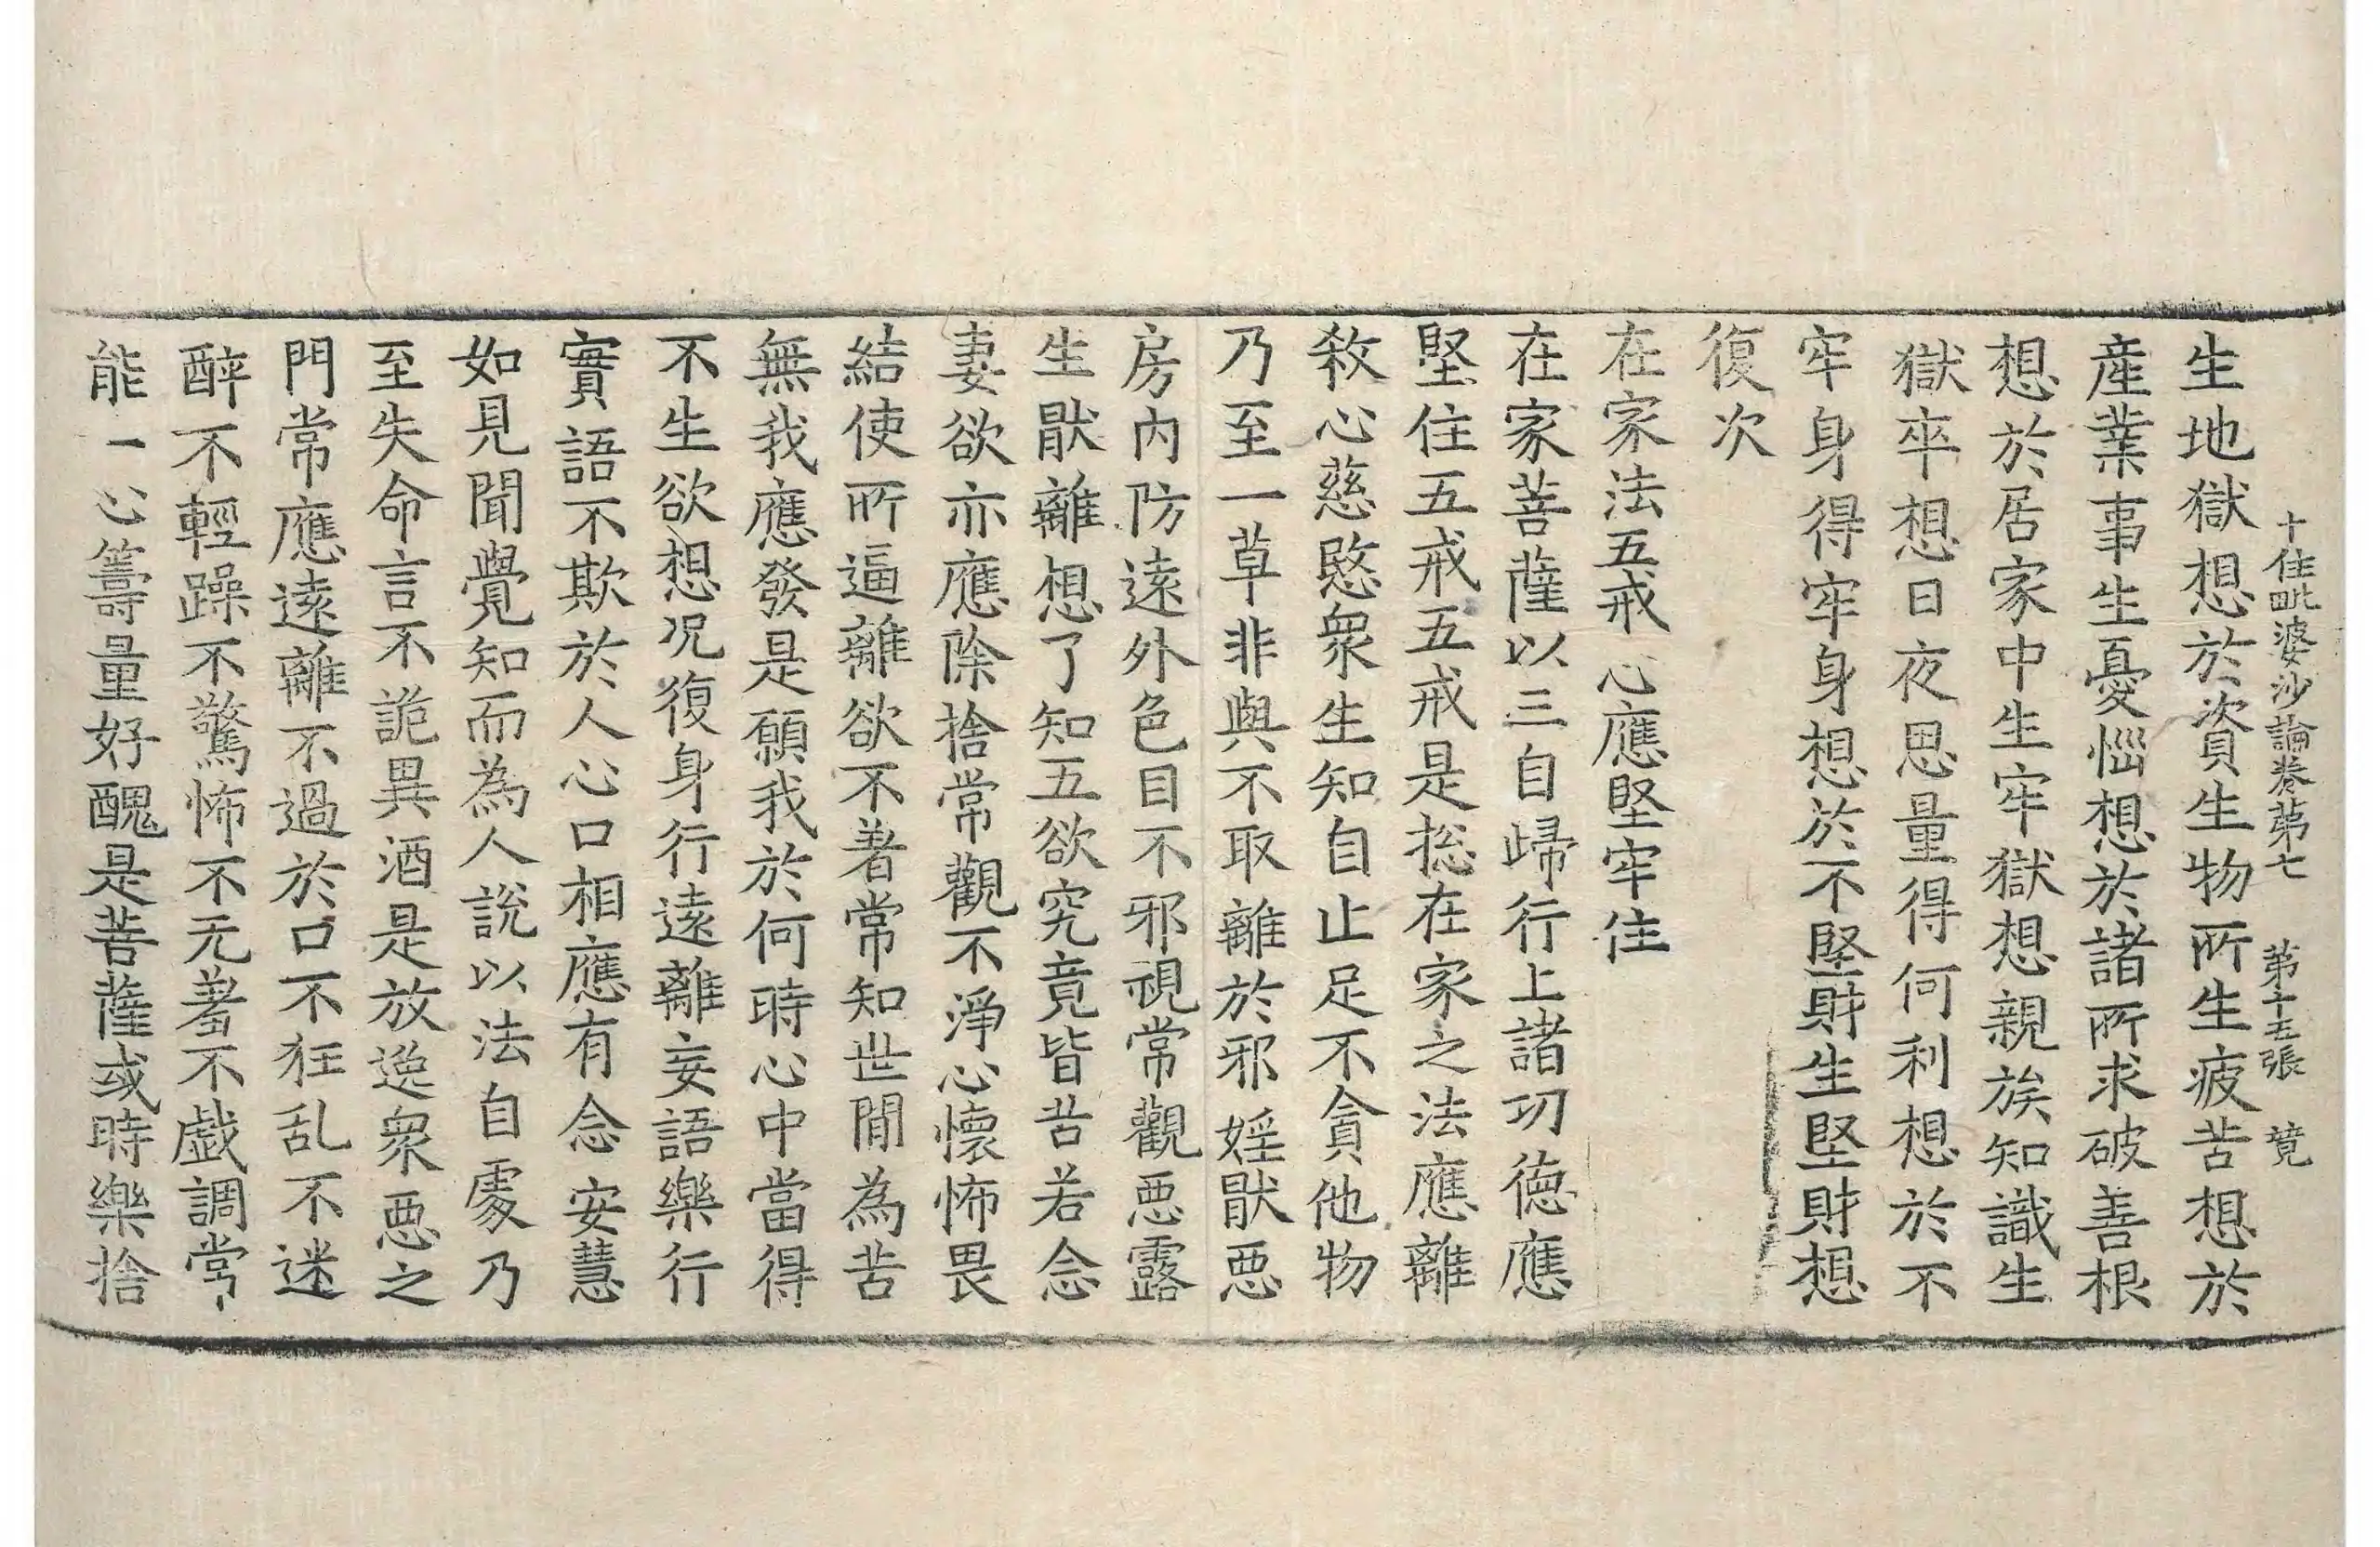 十住毗婆沙論卷第七 第十五張 竟
生地獄想於資生物所生疲苦想於
產業事生憂惱想於諸所求破善根
想於居家中生牢獄想親族知識生
獄卒想日夜思量得何利想於不
牢身得牢身想於不堅財生堅財想
復次
在家法五戒心應堅牢住
在家菩薩以三自歸行上諸功德應
堅住五戒五戒是㧾在家之法應離
煞心慈愍眾生知自止足不貪他物
乃至一草非與不取離於邪婬猒惡
房內防遠外色目不邪視常觀惡露
生猒離想了知五欲究竟皆苦若念
妻欲亦應除捨常觀不淨心懷怖畏
結使所逼離欲不著常知世間為苦
無我應發是願我於何時心中當得
不生欲想况復身行遠離妄語樂行
實語不欺於人心口相應有念安慧
如見聞覺知而為人說以法自處乃
至失命言不詭異酒是放逸眾惡之
門常應遠離不過於口不狂乱不迷
醉不輕躁不驚怖不无羞不戲調常
能一心籌量好醜是菩薩或時樂捨